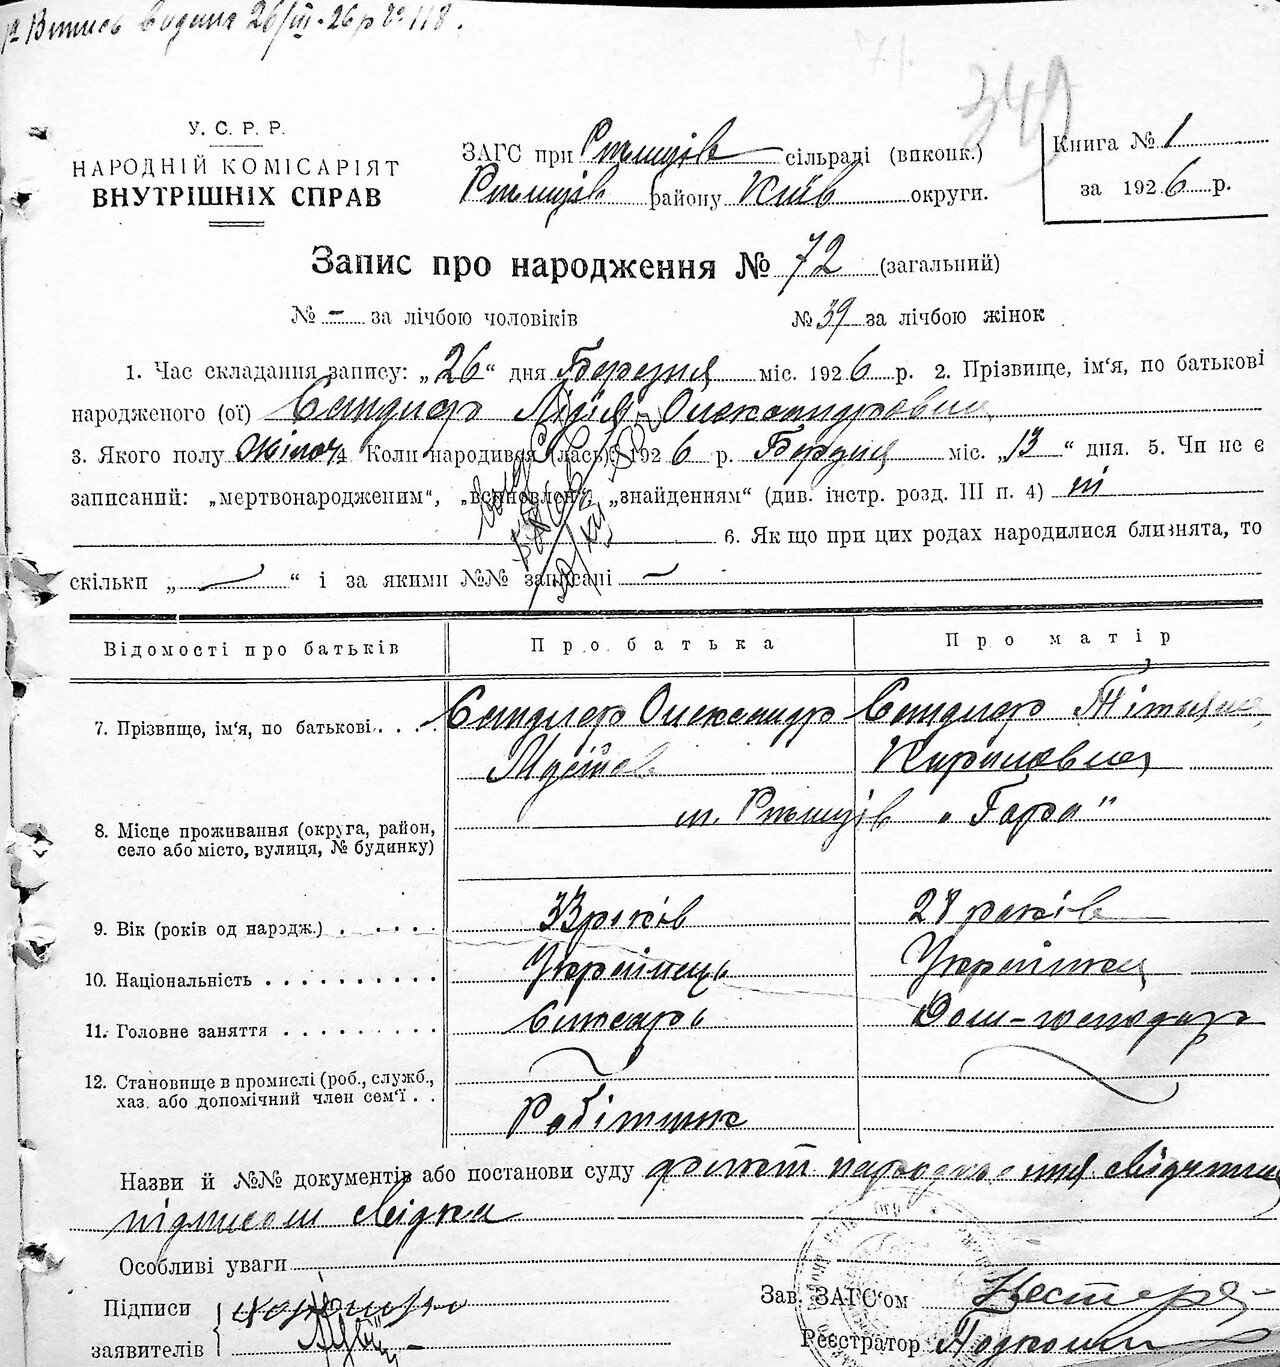 Витись видана 26/III-26 р № 118.
71.
349
У. С. Р. Р.
НАРОДНІЙ КОМІСАРІЯТ
ВНУТРІШНІХ СПРАВ
ЗАГС при Ржищів сільраді (виконк.)
Ржищів району Київ округи.
Книга № 1
за 1926 р.
Запис про народження № 72 (загальний)
№ - за лічбою чоловіків № 39 за лічбою жінок
1. Час складання запису: „26“ дня Березня міс. 1926 р. 2. Прізвище, ім‘я, по батькові
народженого (ої) Сандлер Лідія Олександровна
3. Якого полу жіноч 4 Коли народився (лась): 1926 р. Березня міс. „13“ дня. 5. Чи не є
записаний: „мертвонародженим“, „всиновлен“, „знайденням“ (див. інстр. розд. III п. 4) ні
6. Як що при цих родах народилися близнята, то
скільки „—“ і за якими №№ записані —
Відомості про батьків Про батька Про матір
7. Прізвище, ім‘я, по батькові. . . . Сандлер Олександр Сандлер Тітяна
Кириловна
8. Місце проживання (округа, район, м. Ржищів „Гора“
село або місто, вулиця, № будинку)
9. Вік (років од народж.) . . . . . 33 років 28 років
10. Національність . . . . . . . . . . Українець Українка
11. Головне заняття . . . . . . . . . Столяр Дом-господар
12. Становище в промислі (роб., служб.,
хаз. або допомічний член сем‘ї . . Робітник
Назви й №№ документів або постанови суду факт народження свідчить
підписом свідка
Особливі уваги
Підписи
заявителів
Зав. ЗАГС‘ом
Реєстратор